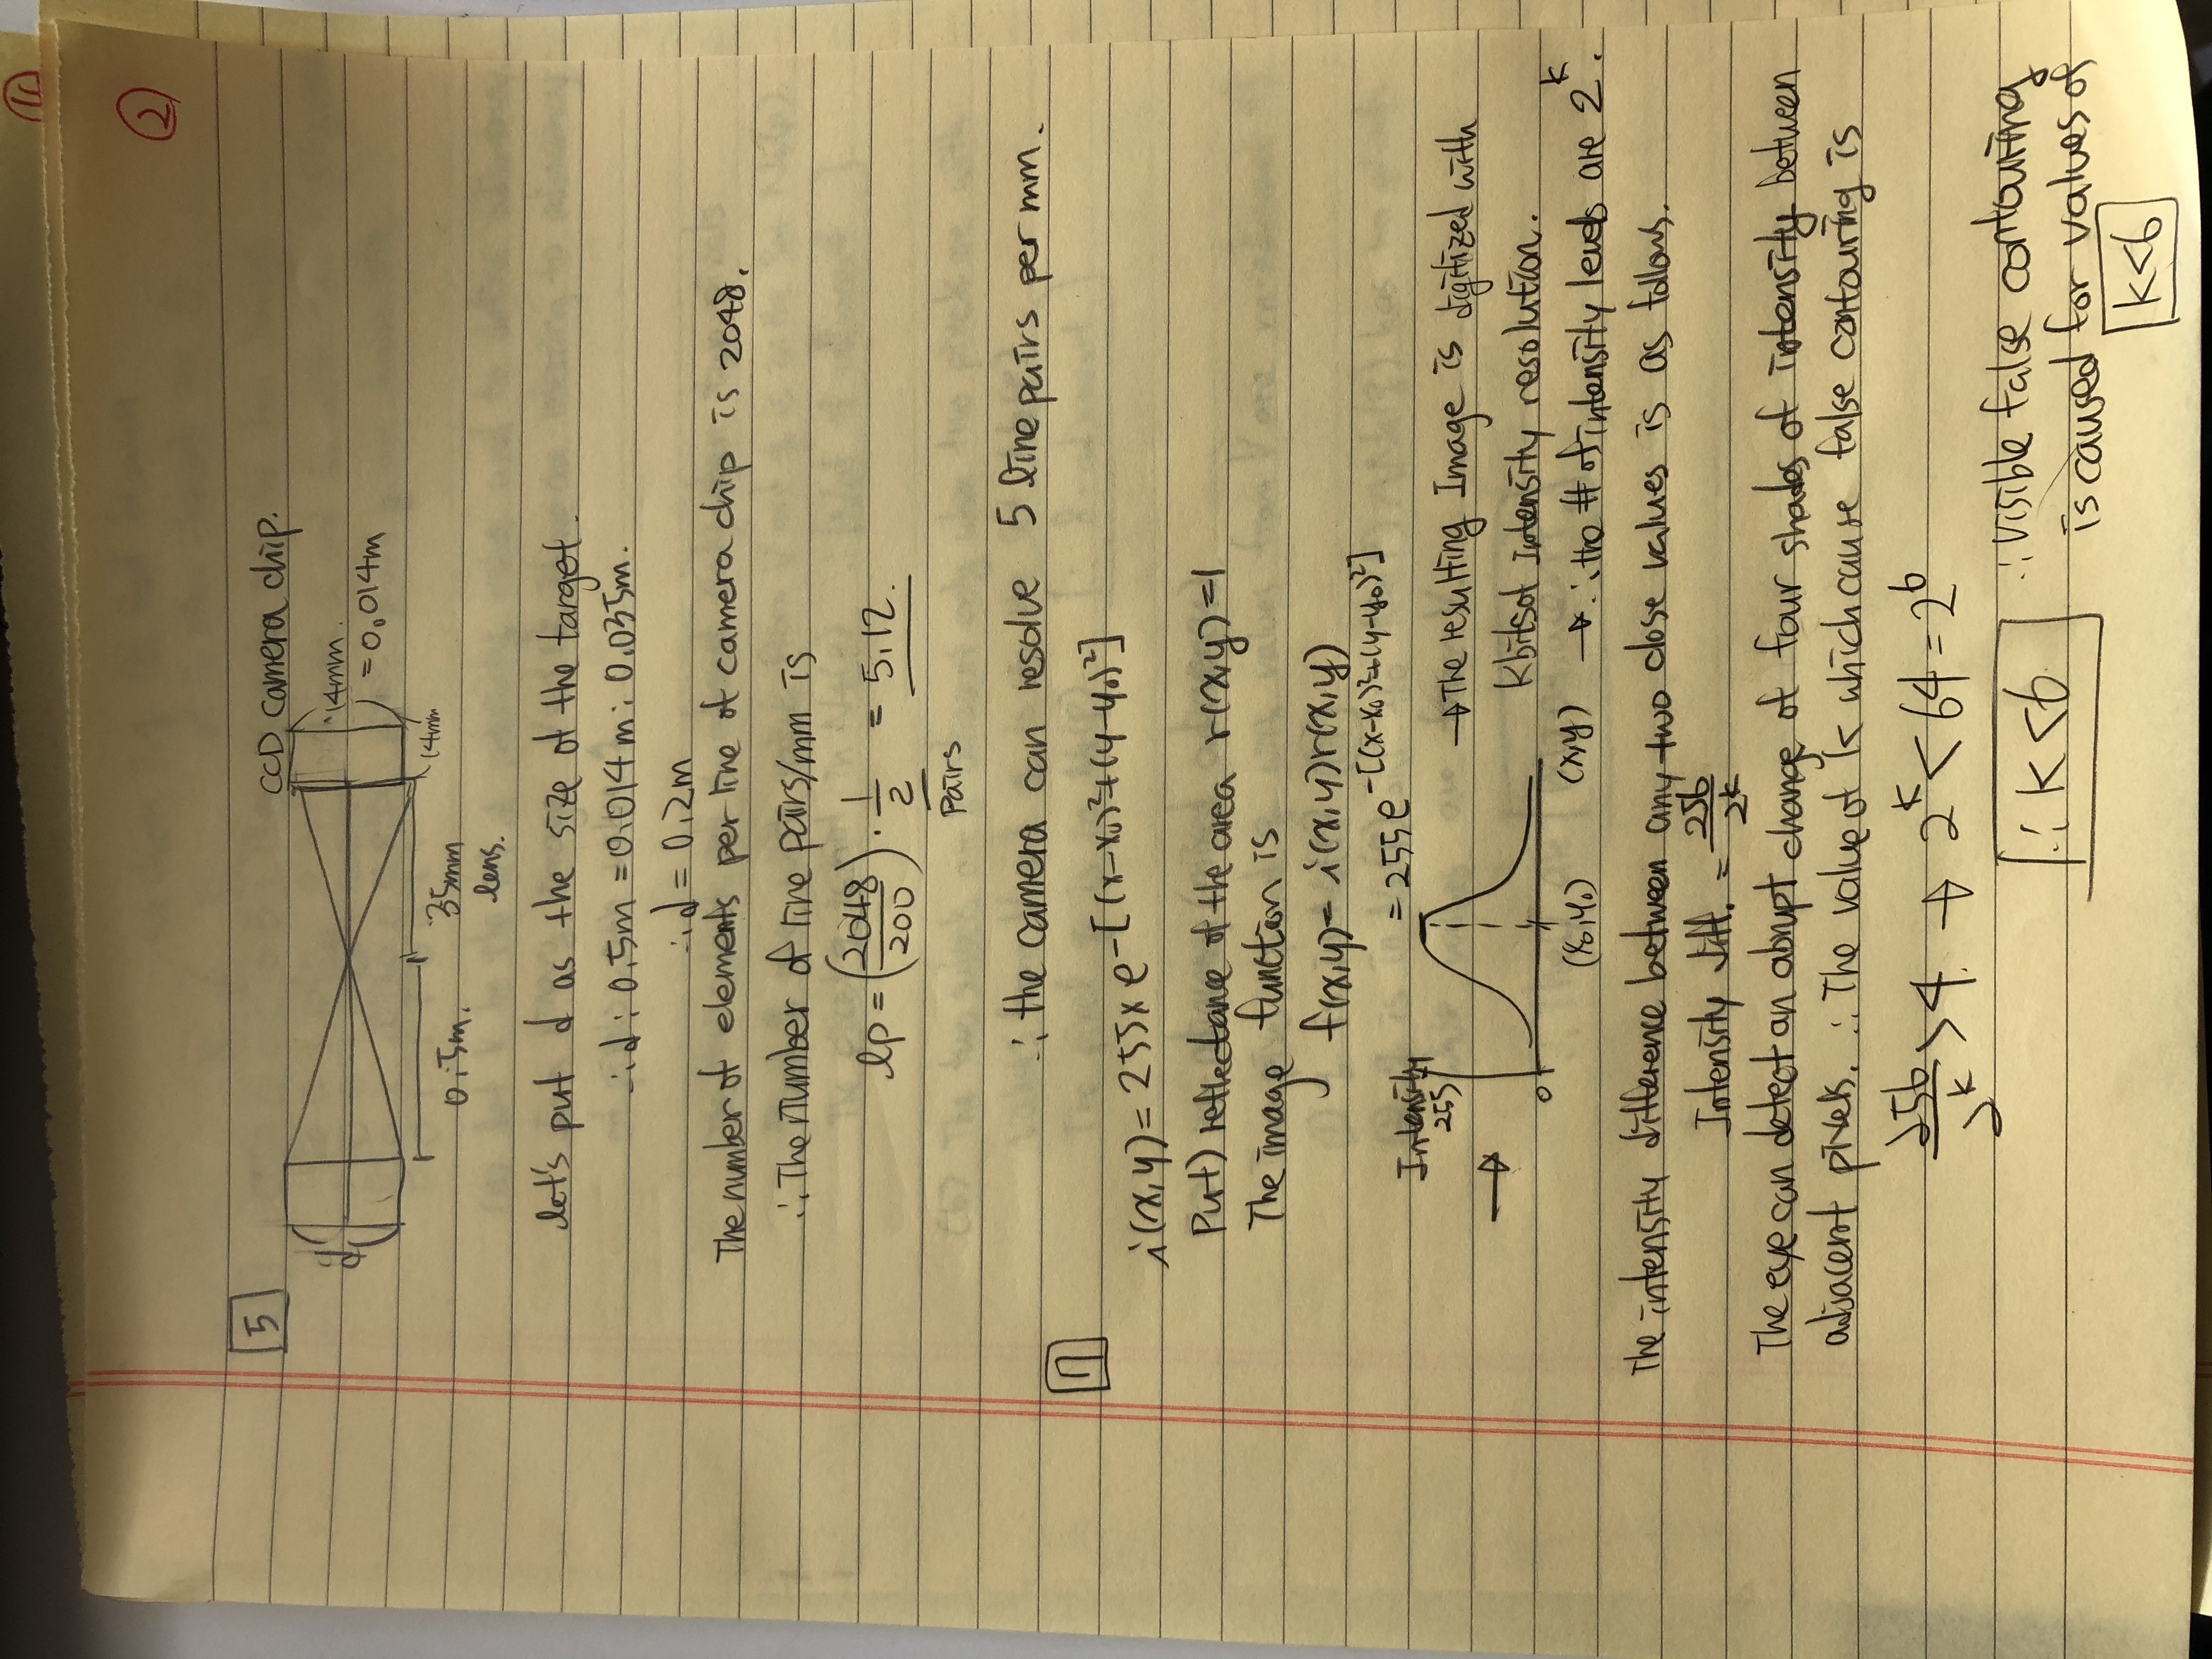 ②
5
CCD camera chip.
d
14mm.
= 0.014m
14mm
0.5m.
35mm
lens.
let's put d as the size of the target.
∴ d : 0.5m = 0.014m : 0.035m.
∴ d = 0.2m
The number of elements per line of camera chip is 2048.
∴ The number of line pairs/mm is
lp = (2048/200) · 1/2 = 5.12.
Pairs
∴ the camera can resolve 5 line pairs per mm.
7
i(x,y) = 255 x e^-[(x-x0)²+(y-y0)²]
Put) reflectance of the area r(x,y)=1
The image function is
f(x,y) = i(x,y)r(x,y)
= 255e^-[(x-x0)²+(y-y0)²]
Intensity
255
→
0
(x0,y0)
(x,y)
→ The resulting Image is digitized with
k bits of Intensity resolution.
→ ∴ the # of intensity levels are 2^k.
The intensity difference between any two close values is as follows.
Intensity diff. = 256/2^k
The eye can detect an abrupt change of four shades of intensity between
adjacent pixels. ∴ The value of k which cause false contouring is
256/2^k > 4. → 2^k < 64 = 2^6
∴ k < 6
∴ visible false contouring
is caused for values of
k<6